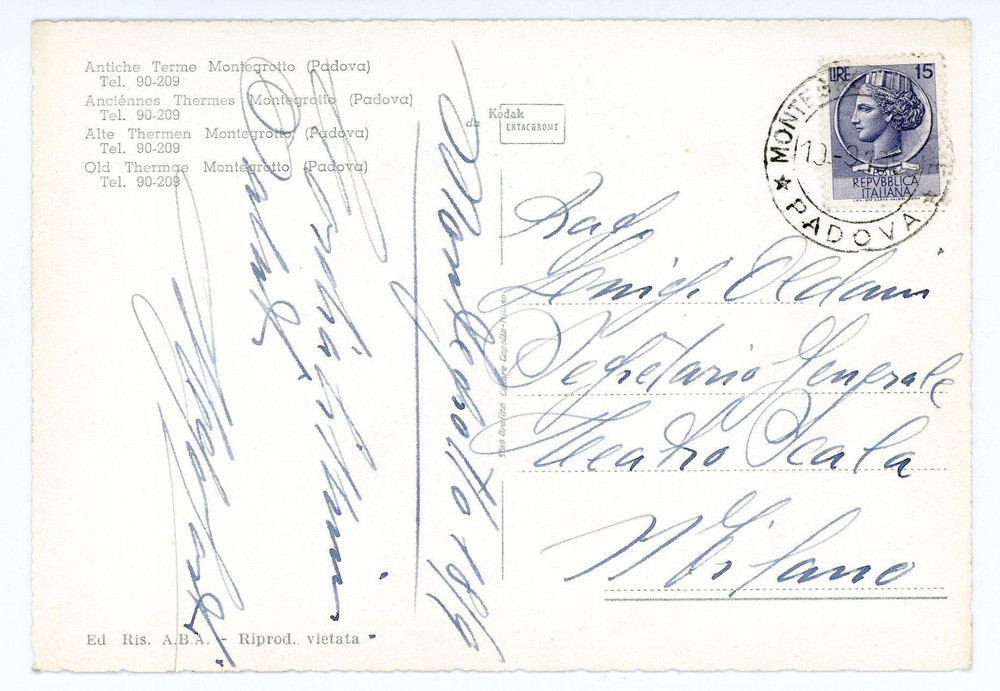 Antiche Terme Montegrotto (Padova)
Tel. 90-209
Anciénnes Thermes Montegrotto (Padova)
Tel. 90-209
Alte Thermen Montegrotto (Padova)
Tel. 90-209
Old Thermae Montegrotto (Padova)
Tel. 90-209
da Kodak
EKTACHROME
LIRE 15
REPVBBLICA
ITALIANA
MONTEG
PADOVA
Rag.
Luigi Oldani
Segretario Generale
Teatro Scala
Milano
Montegrotto
Cordialissimi
Ed Ris. A.B.A. - Riprod. vietata